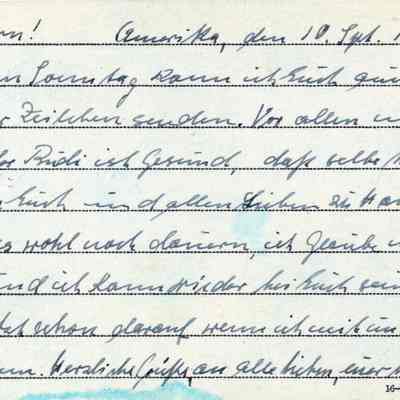 rn! Amerika, den 10. Spt. 1
en Sonntag kann ich Euch
r Zeilchen senden. Vor allen
Rudi ist Gesund, daß selbe
Euch und allen Lieben zu Ha
es wohl noch dauern, ich Glaube
und ich kann wieder bei Euch sein
schon darauf wenn ich mit
n. Herzliche Grüße, an alle Lieben, euer
16—